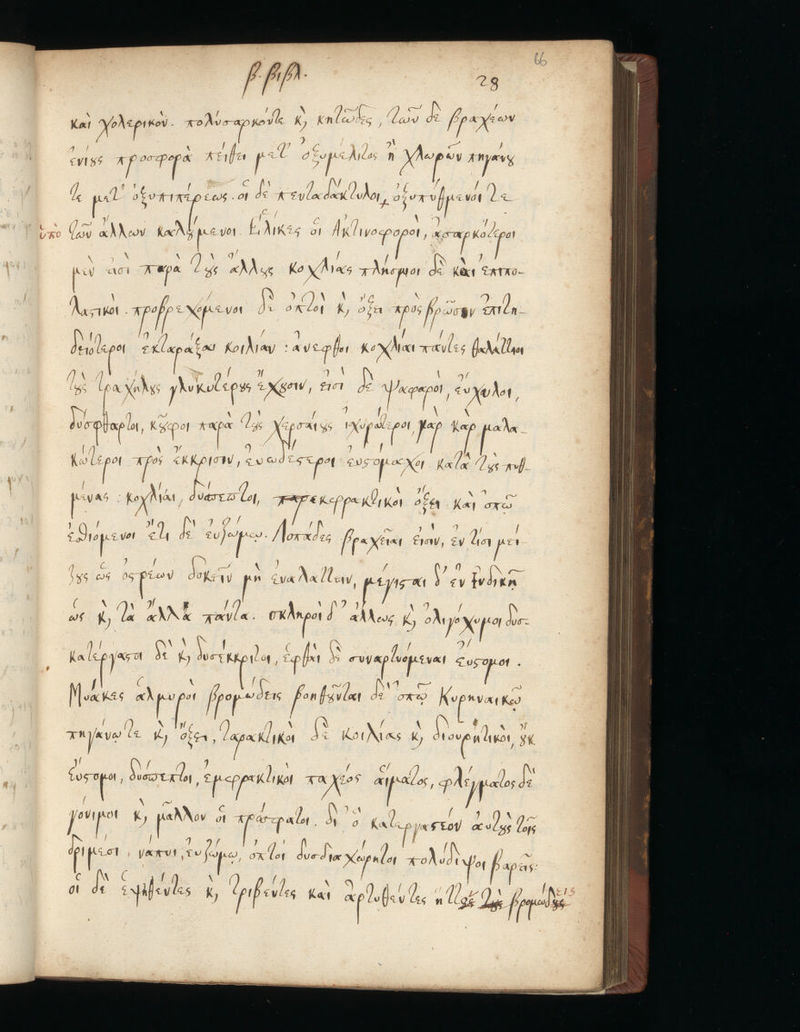 β. βιβλ. 28 66
καὶ χολερικὸν. πολύσαρκόντε κỳ κητῶδες, τῶν δὲ βραχέων
ἐνίους προσφορὰ πείθει μετ' ὀξυμέλιτος ἢ χλωρῶν πηγάνου
τε μετ' ὀξυπιπέρεως. οἱ δὲ πενταδάκτυλοι, ὀξυπύθμενοί τε
ὑπὸ τῶν ἄλλων καλούμενοι. Εἵλικες οἱ Ἀκτινοφοροὶ, ἀσαρκότεροι
μὲν ἀσὶ παρὰ τοὺς ἄλλους κοχλίας πλήσμιοι δὲ καὶ ἐπιπο-
λαστικοὶ. προβρεχόμενοι δὲ ὀπτοὶ κỳ ὄξει πρὸς βρῶσιν ἐπιτη-
δειότεροι ἐκταράξαι κοιλίαν : ἄνεφθοι κοχλίαι πάντες θαλάττιοι
τοὺς τραχήλους γλυκυτέρους ἔχουσιν, εἰσὶ δὲ ψαφαροὶ, εὔχυλοι,
δύσφθαρτοι, κοῦφοι παρὰ τοὺς χερσαίους ἰχυρότεροι, μαλα-
κώτεροι πρὸς ἔκκρισιν, εὐωδέστεροι εὐστόμαχοι κατὰ τοὺς πυθ-
μένας : κοχλίαι, δύσπεπτοι, ὄξει καὶ ὀπῷ
ἐσθιόμενοι ἔτι δὲ εὐζώμῳ. Λοπάδες βραχεῖαι εἰσὶν, ἐν τίσι μεί-
ζους ὡς ὀστρέων δοκεῖν μὴ ἐναλάττειν, μέγισται δ' ἐν Ἰνδικῇ
ὡς κỳ τὰ ἄλλα πάντα. σκληροὶ δ' ἄλλως κỳ ὀλιγόχυμοι δυσ-
κατέργαστοι δὲ κỳ δυσέκκριτοι, ἑφθαὶ δὲ συναρτυόμεναι εὔστομοι.
Μύακες ἁλμυροὶ βρομώδεις βοηθοῦνται δὲ ὀπῷ Κυρηναικῷ
πηγάνῳ τε κỳ ὄξει, ταρακτικοὶ δὲ κοιλίας κỳ διουρητικοὶ, οὐκ
εὔστομοι, δύσπεπτοι, ἐμφρακτικοὶ παχέος αἵματος, φλέγματος δὲ
γόνιμοι κỳ μᾶλλον οἱ πρόσφατοι. δι' ὃ κατεργαστέον αὐτοὺς τοῖς
δριμέσι, νάπυι, εὐζώμῳ, ὀπτοὶ δυσδιαχώρητοι πολύδιψοι βαρεῖς:
οἱ δὲ ἑψηθέντες κỳ τριβέντες καὶ ἀρτυθέντες ἧττον βρομώδεις